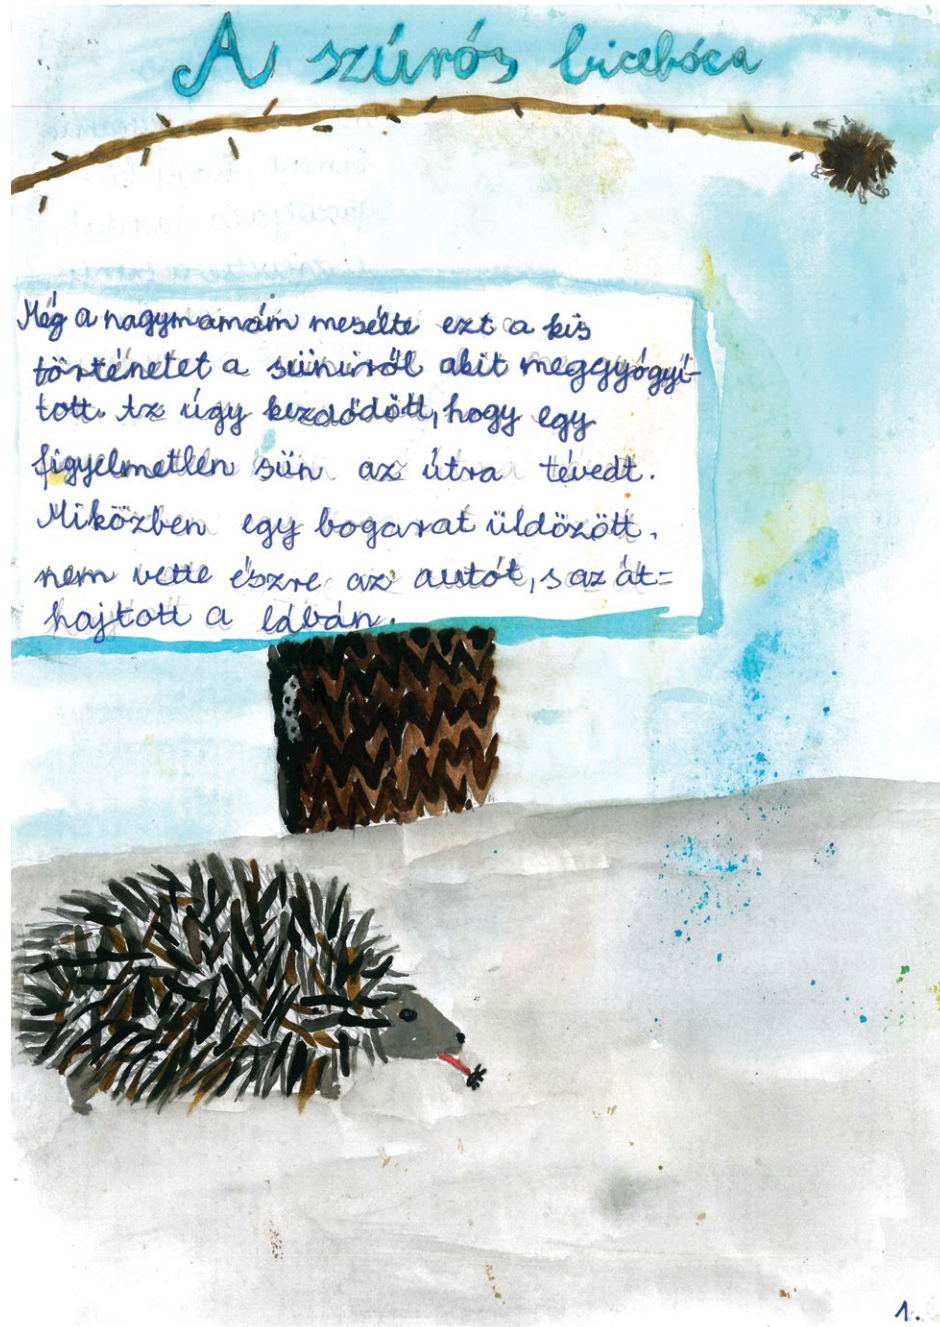 A szúrós bicebóca
Még a nagymamám mesélte ezt a kis
történetet a süniről akit meggyógyí-
tott. Az úgy kezdődött, hogy egy
figyelmetlen sün az útra tévedt.
Miközben egy bogarat üldözött,
nem vette észre az autót, s az át=
hajtott a lábán.
1.